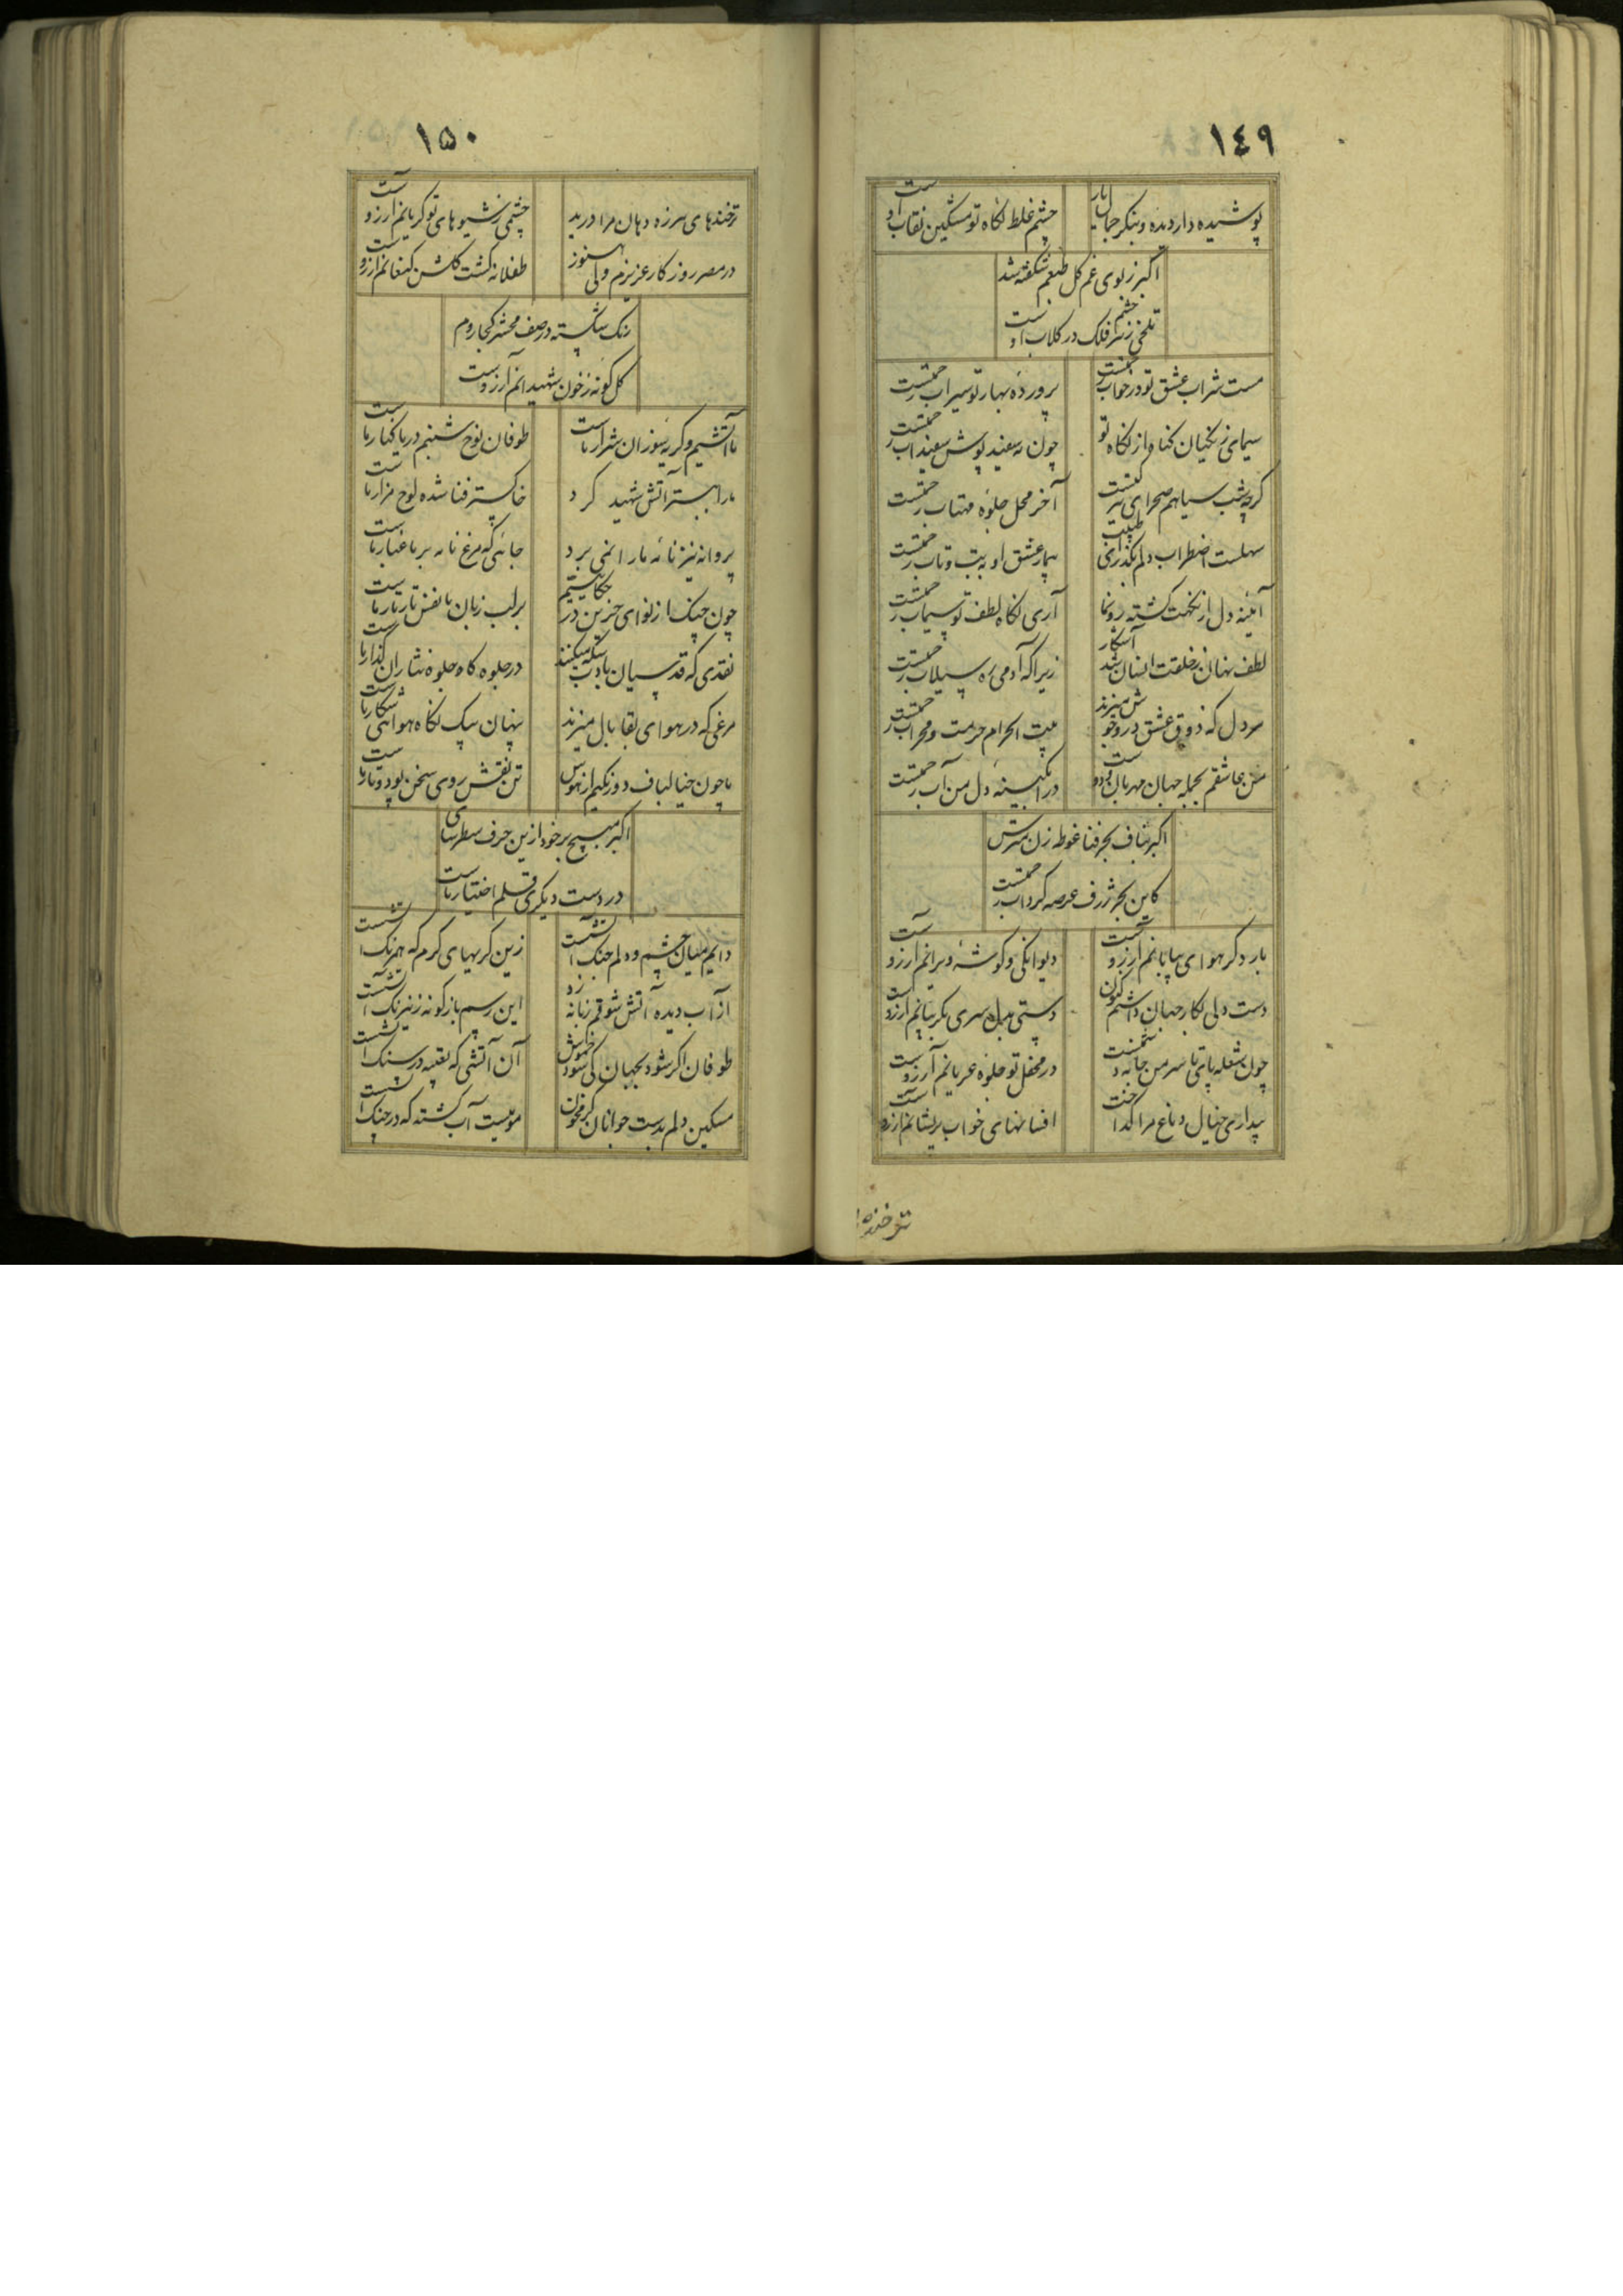 ١٤٩
پوشیده دار دیده و بنگر جمال یار
چشم غلط نگاه تو مشکین نقاب اوست
اکبر ز بوی غم گل طبعم شکفته شد
تلخی ز زهر چشم فلک در گلاب اوست
مست شراب عشق تو در خواب رحمتست
پروردهٔ بهار تو سیراب رحمتست
سیمای زنگیان گناه از نگاه تو
چون مه سفید پوش سفیداب رحمتست
گرچه شب سیاهم صحرای نیستیست
آخر محل جلوهٔ مهتاب رحمتست
سهلست اضطراب دلم بگذر ای طبیب
بیمار عشق او به تب و تاب رحمتست
آیینه دل از نگهت گشته رونما
آری نگاه لطف تو سیماب رحمتست
لطف نهان ز خلقت انسان شد آشکار
زیرا که آدمی ره سیلاب رحمتست
هر دل که ذوق عشق درو جوش میزند
بیت الحرام حرمت و محراب رحمتست
من عاشقم بجمله جهان مهربان
در آبگینهٔ دل من آب رحمتست
اکبر بناف بحر فنا غوطه زن مترس
کاین بحر ژرف عرصه گرداب رحمتست
بار دگر هوای بیابانم آرزوست
دیوانگی و گوشهٔ ویرانم آرزوست
دست و دلی بکار جهان داشتم کنون
دستی بدل سری بگریبانم آرزوست
چون شعله پای تا سر من
در محفل تو جلوهٔ عریانم آرزوست
بیداری خیال دماغ مرا گداخت
افسانهای خواب پریشانم آرزوست
ترخندها
١٥٠
ترخندهای هرزه دهان مرا درید
چشمی ز شیوهای تو گریانم آرزوست
در مصر روزگار عزیزم ولی هنوز
طفلانه گشت گلشن کنعانم آرزوست
رنگ شکسته در صف محشر کجا روم
گل گونه ز خون شهیدانم آرزوست
ما آتشیم و گریهٔ سوزان شرار ماست
طوفان نوح شبنم دریا کنار ماست
ما را به بستر آتش شهید کرد
خاکستر فنا شده لوح مزار ماست
پروانه نیز نامه ما را نمی برد
جائی که مرغ نامه بر ما غبار ماست
چون چنگ از نوای حزین در حکایتیم
بر لب زبان ما نفس تار تار ماست
نقدی که قدسیان بادب سکه میکنند
در جلوه گاه جلوه نثاران گدار ماست
مرغی که در هوای بقا بال میزند
پنهان پیک نگاه هوائی شکار ماست
ما چون خیالباف دو رنگیم از هوس
تن نقش روی سخن پود و تار ماست
اکبر مپیچ بر خود ازین حرف سطرسای
در دست دیگری قلم اختیار ماست
دایم میان چشم و دلم جنگ آتشست
زین گریهای گرم که همرنگ آتشست
از آب دیده آتش شوقم زبانه زد
این رسم باژگونه ز نیرنگ آتشست
طوفان اگر شود بجهان کی شود خموش
آن آتشی که تعبیه در سنگ آتشست
مسکین دلم بدست جوانان گرم خون
مومیست آب گشته که در چنگ آتشست